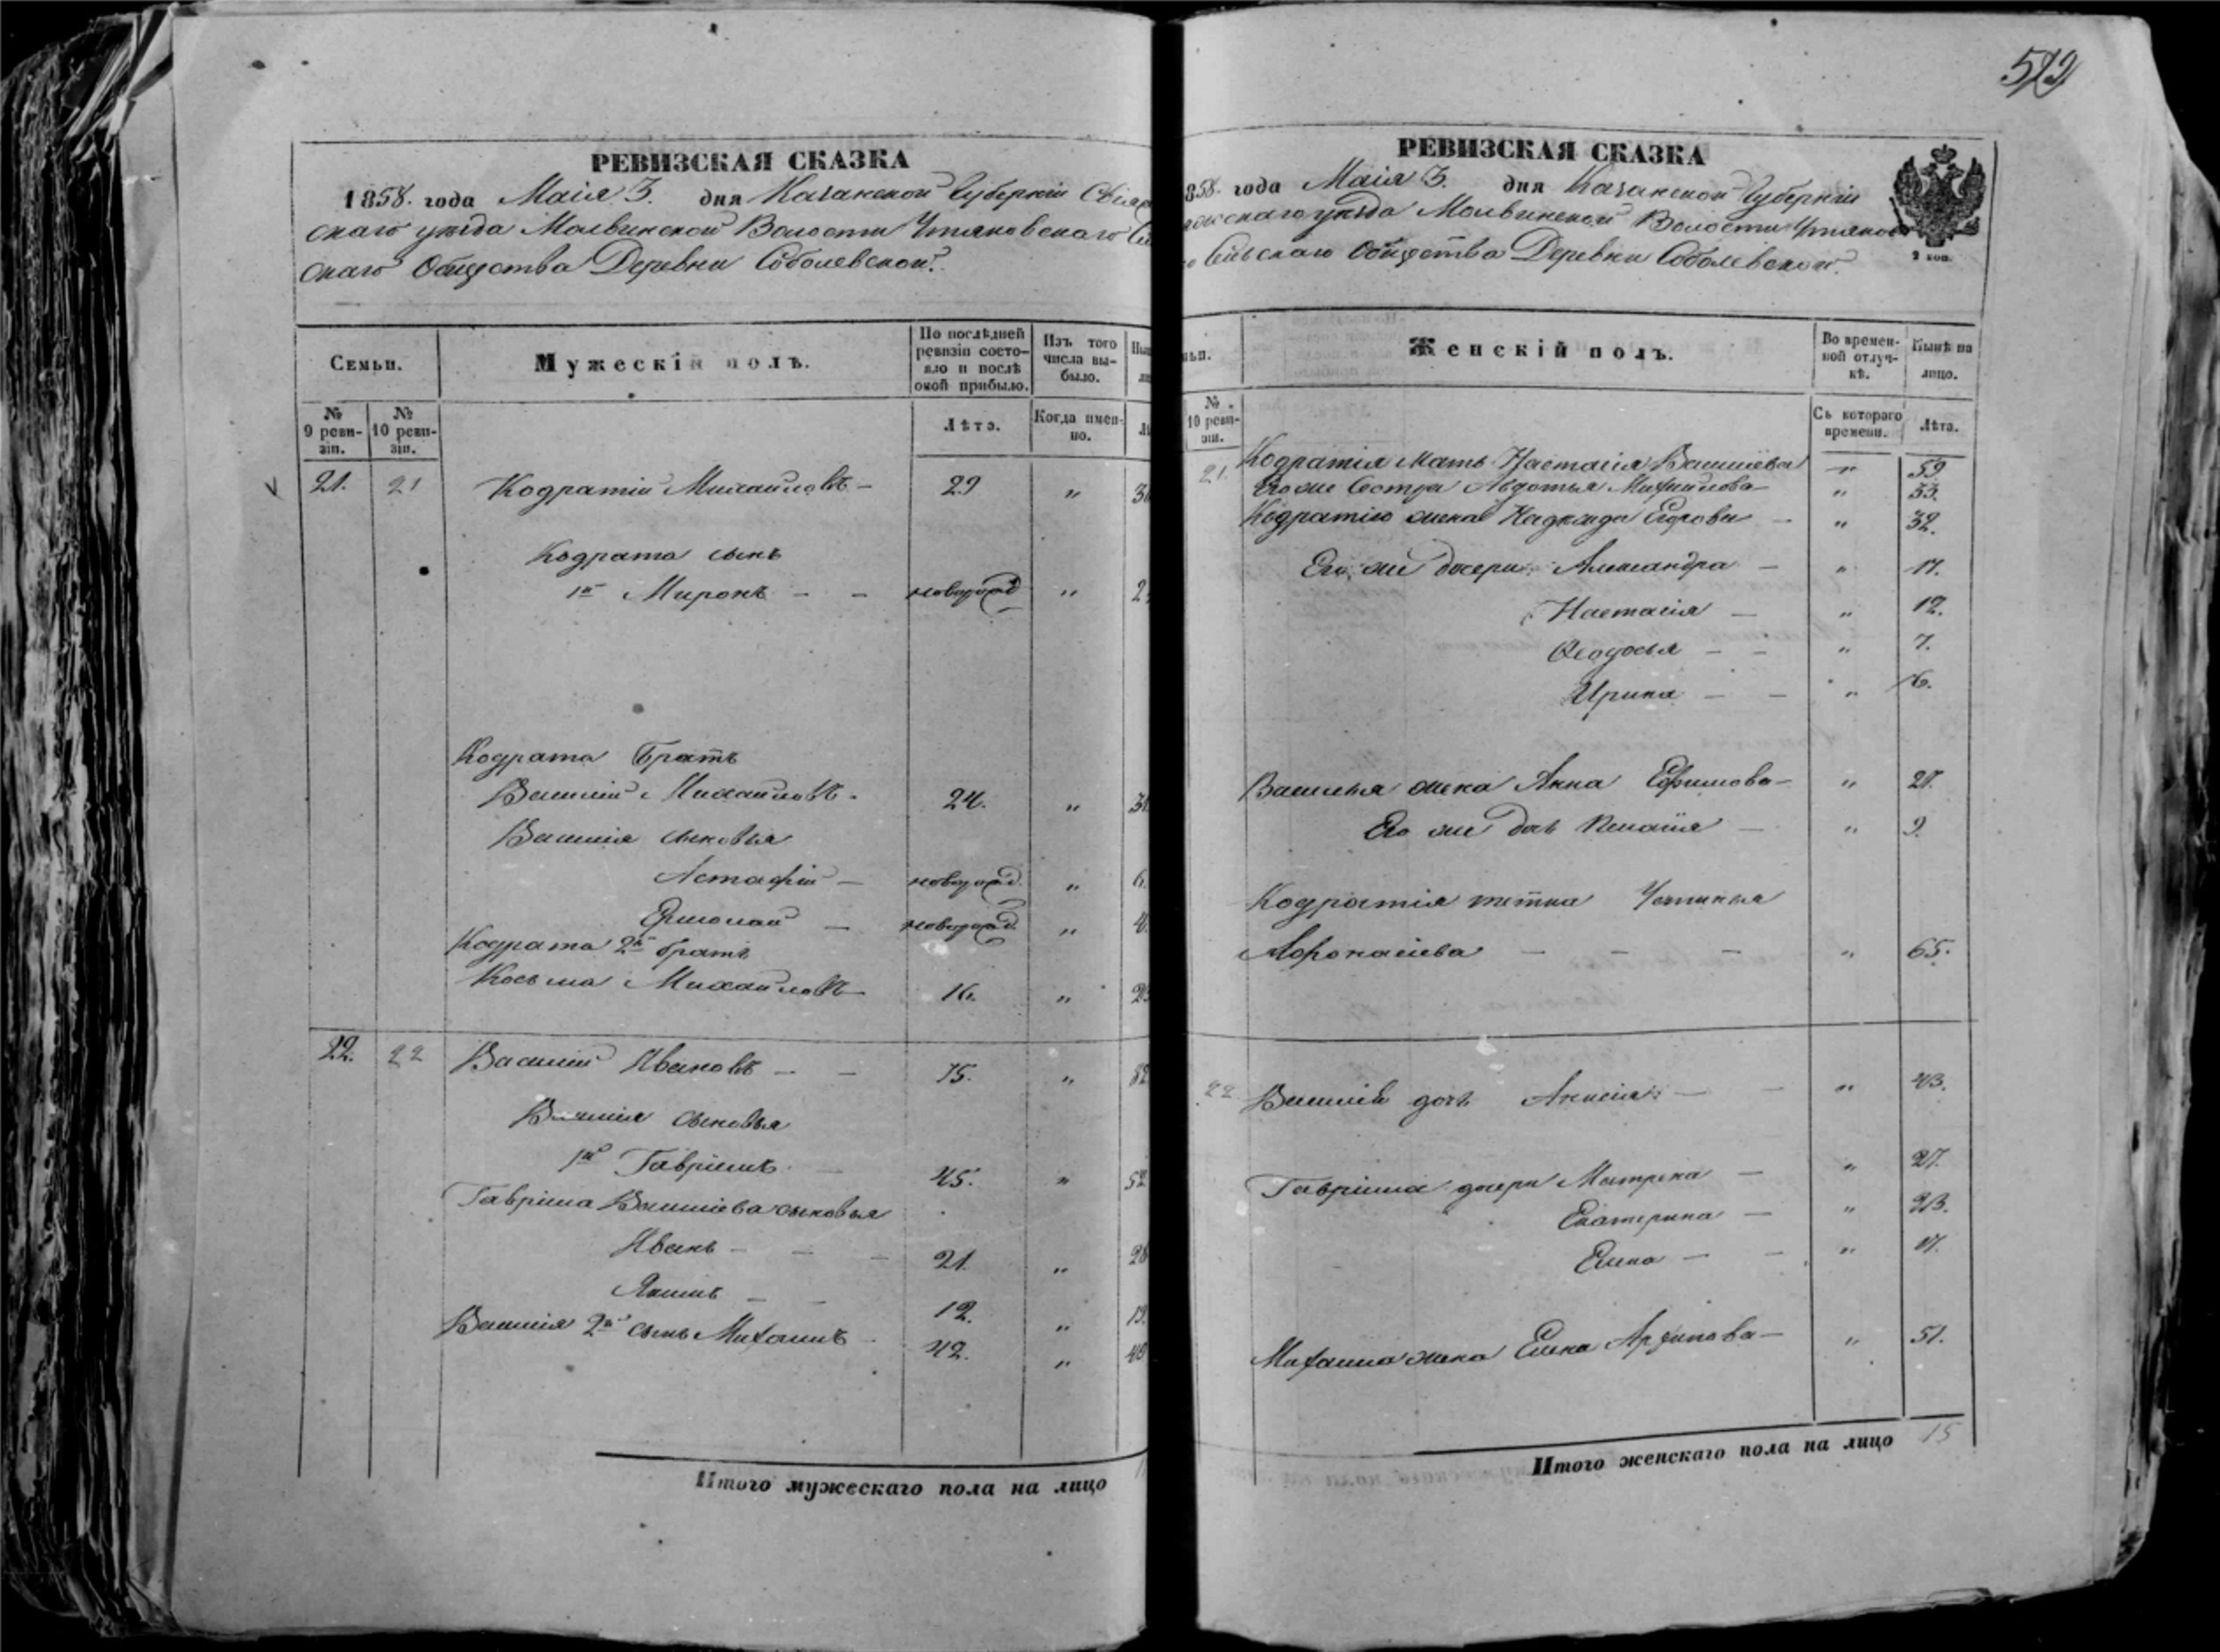 РЕВИЗСКАЯ СКАЗКА
1858. года Маія 3. дня Казанской Губерніи Свіяж
скаго уѣзда Молвинской Волости Утяковскаго Сель
скаго Общества Деревни Соболевской.
Семьи.
Мужескій полъ.
По послѣдней ревизіи состояло и послѣ оной прибыло.
Изъ того числа выбыло.
№ 9 ревизіи.
№ 10 ревизіи.
Лѣта.
Когда именно.
21. 21 Кодратій Михайловъ 29 "
Кодрата сынъ
1й Миронъ новорожд "
Кодрата братъ
Василій Михайловъ 24. "
Василія сыновья
Астафій новорожд. " 6.
Ермолай новорожд " 4.
Кодрата 2й братъ
Косьма Михайловъ 16. "
22. 22 Василій Ивановъ 75. " 82
Василія сыновья
1й Гаврилъ 45. " 52
Гаврила Васильева сыновья
Иванъ 21. " 28
Якимъ 12. " 19.
Василія 2й сынъ Михаилъ 42. " 49
Итого мужескаго пола на лицо
572
РЕВИЗСКАЯ СКАЗКА
858. года Маія 3. дня Казанской Губерніи
скаго уѣзда Молвинской Волости Утяков
Сельскаго Общества Деревни Соболевской.
2 коп.
Женскій полъ.
Во временной отлучкѣ.
Нынѣ на лицо.
№ 10 ревизіи.
Съ котораго времени.
Лѣта.
21. Кодратія мать Настасія Васильева " 59
Его же Сестра Авдотья Михайлова " 33.
Кодратія жена Надежда Егорова " 32.
Его же дочери Александра " 17.
Настасія " 12.
Ѳеодосья " 7.
Ирина " 6.
Василья жена Анна Ефимова " 27.
Его же дочь Пелагія " 9.
Кодратія тетка Устинья
Афонасіева " 65.
22 Василія дочь Анисія " 43.
Гаврила дочери Матрена " 27.
Екатерина " 23.
Елена " 17.
Михаила жена Елена Архипова " 51.
Итого женскаго пола на лицо 15